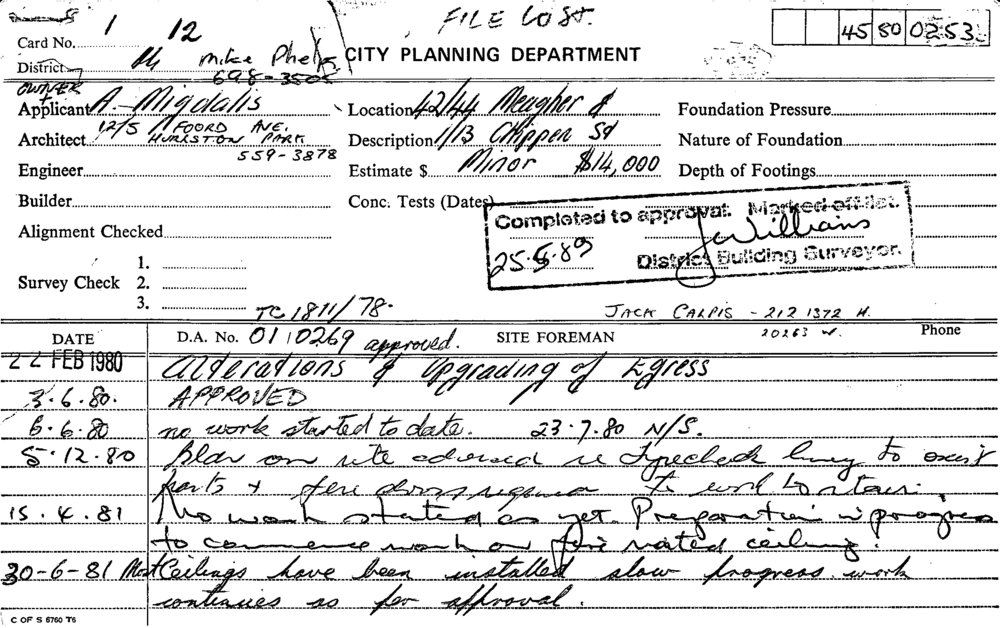 FILE LOST.
1 12
45 80 0253
Card No.
Mike Phelps CITY PLANNING DEPARTMENT
District
698-3505
OWNER
Applicant A. Migdalis Location 42/44 Meagher St Foundation Pressure
Architect 12/5 FOORD AVE. Description 1/13 Chippen St Nature of Foundation
HURLSTON PARK
559-3878
Engineer Estimate $ Minor $14,000 Depth of Footings
Builder Conc. Tests (Dates)
Completed to approval. Marked off list.
Alignment Checked
J Williams
25.5.89 District Building Surveyor.
1.
Survey Check 2.
3.
TC 1811/78. JACK CALPIS - 212 1372 H.
20263 W.
DATE D.A. No. 01 0269 approved. SITE FOREMAN Phone
22 FEB 1980 Alterations & Upgrading of Egress
3.6.80. APPROVED
6.6.80 no work started to date. 23.7.80 N/S.
5.12.80 on site re to exist
parts + fire doors to
15.4.81 No work started as yet. Preparation in progress
to commence work on fire rated ceiling.
30-6-81 Most Ceilings have been installed slow progress work
continues as per approval.
C OF S 6760 T6